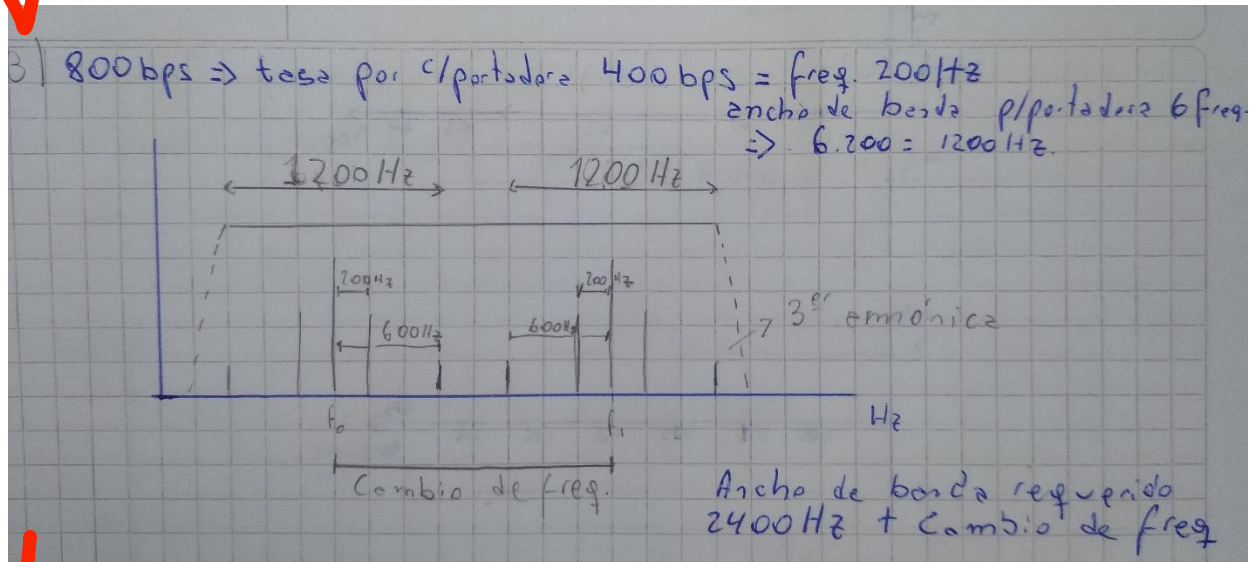 3) 800bps => tasa por c/portadora 400bps = freq. 200Hz
ancho de banda p/portadora 6 freq.
=> 6.200 = 1200Hz.
1200Hz 1200Hz
200Hz 200Hz
600Hz 600Hz
3er armónica
f0 f1 Hz
Cambio de freq.
Ancho de banda requerido
2400Hz + Cambio de freq